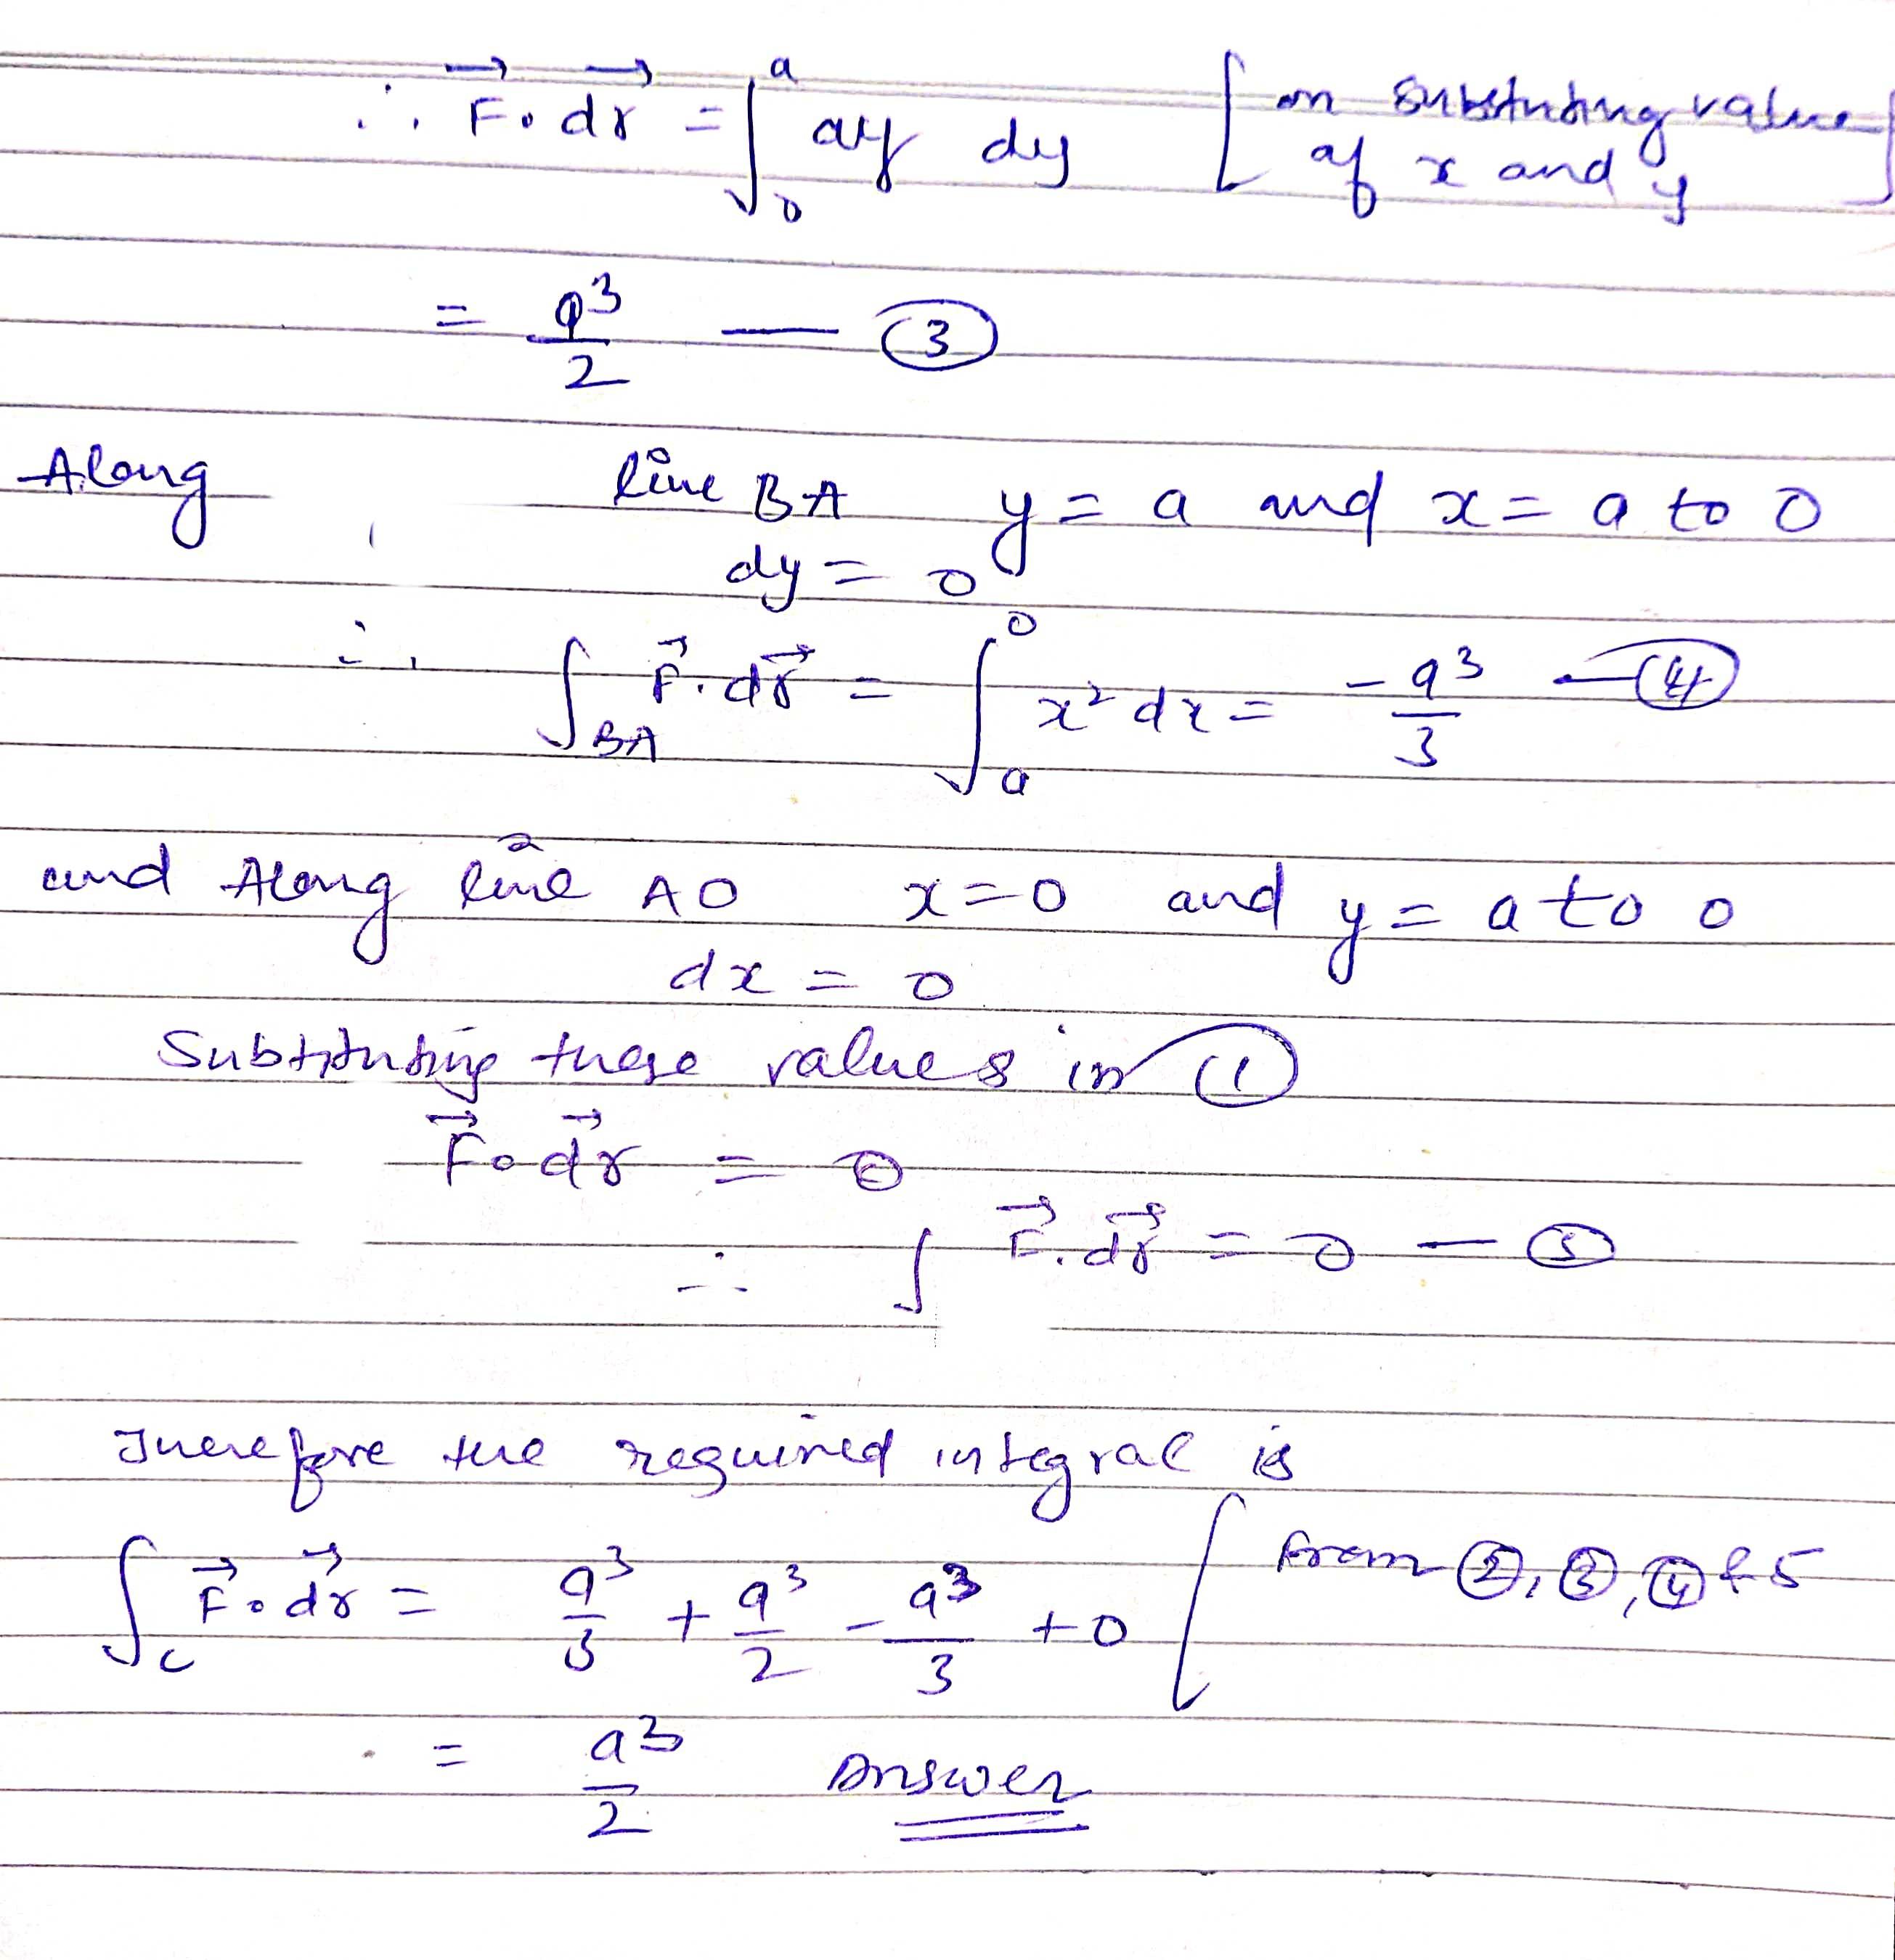 ∴ F⃗ . dr⃗ = ∫₀ᵃ ay dy [on substituting value
of x and y]
= a³/2 — ③
Along line BA y = a and x = a to 0
dy = 0
∴ ∫_BA F⃗ . dr⃗ = ∫ₐ⁰ x² dx = -a³/3 — ④
and Along line AO x = 0 and y = a to 0
dx = 0
Subtituting these values in ①
F⃗ . dr⃗ = 0
∴ ∫ F⃗ . dr⃗ = 0 — ⑤
Therefore the required integral is
∫_C F⃗ . dr⃗ = a³/3 + a³/2 - a³/3 + 0 [from ②, ③, ④ & 5
= a³/2 Answer